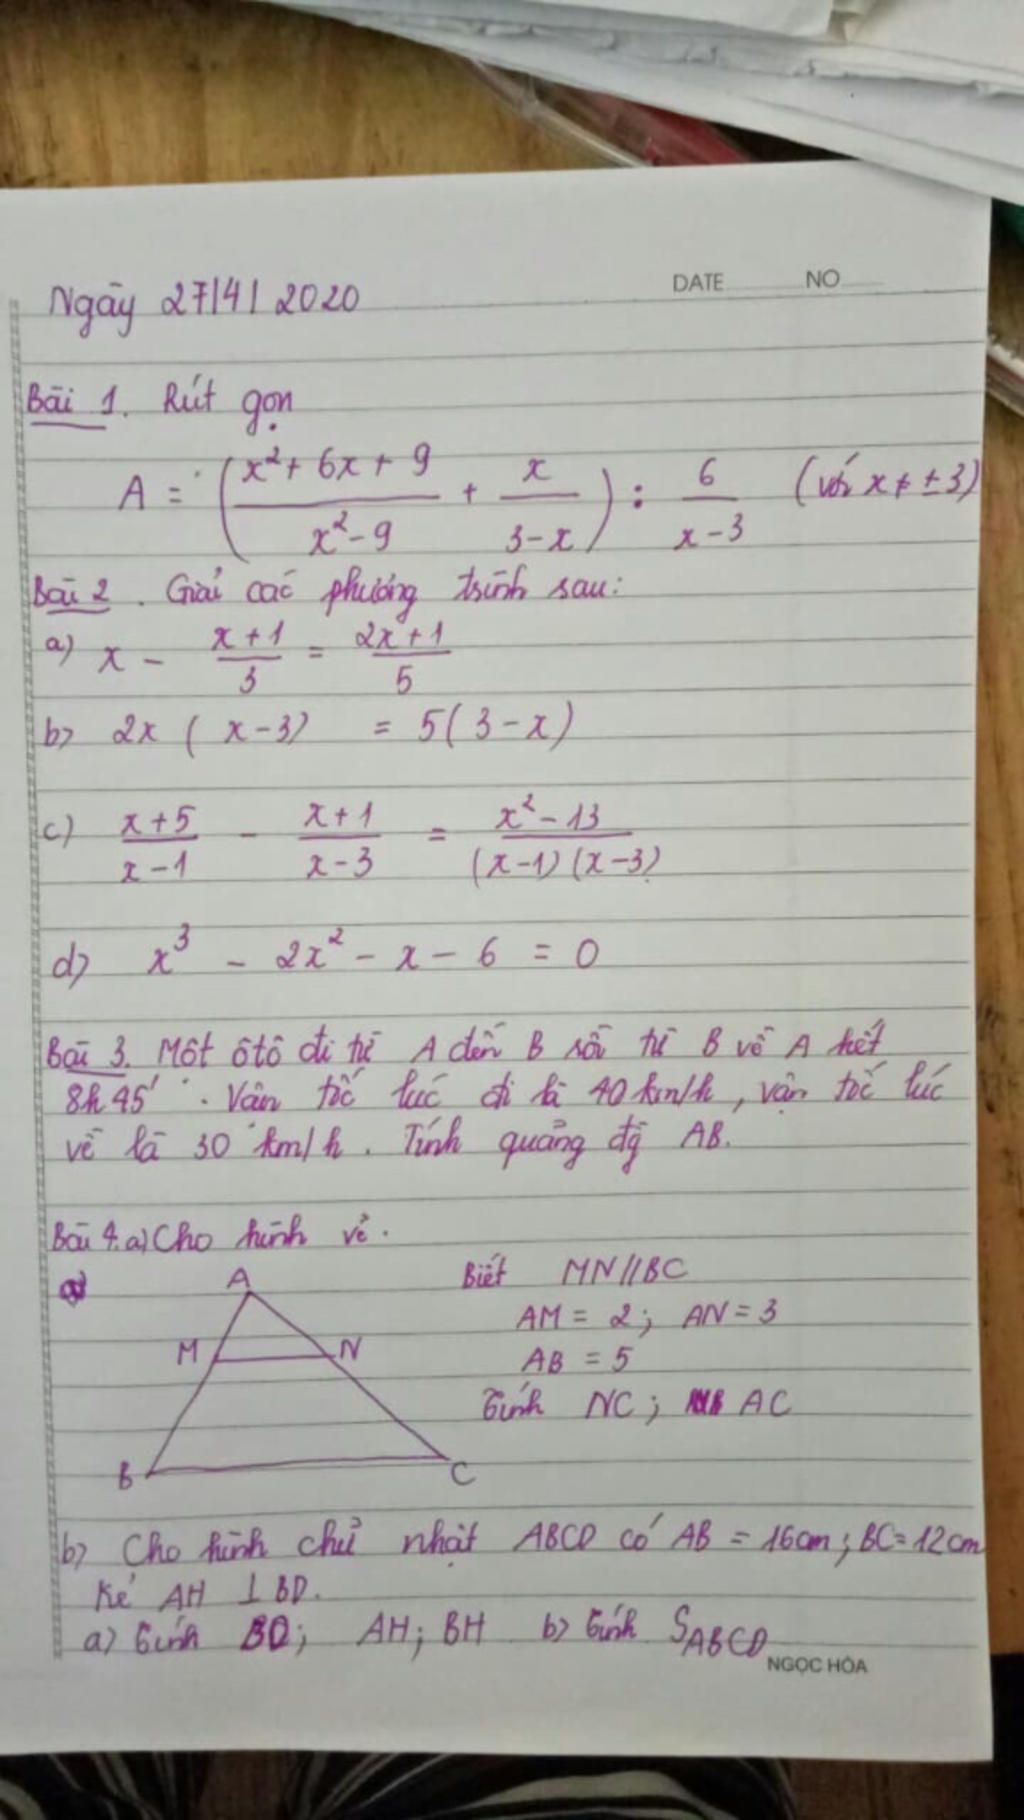 DATE NO
Ngày 27/4/2020
Bài 1. Rút gọn
A = (x²+6x+9 / x²-9 + x / 3-x) : 6 / x-3 (với x ≠ ±3)
Bài 2. Giải các phương trình sau:
a) x - x+1 / 3 = 2x+1 / 5
b) 2x (x-3) = 5(3-x)
c) x+5 / x-1 - x+1 / x-3 = x²-13 / (x-1)(x-3)
d) x³ - 2x² - x - 6 = 0
Bài 3. Một ôtô đi từ A đến B rồi từ B về A hết
8h 45'. Vận tốc lúc đi là 40 km/h, vận tốc lúc
về là 30 km/h. Tính quãng đg AB.
Bài 4. a) Cho hình vẽ.
A
Biết MN//BC
AM = 2; AN = 3
M N
AB = 5
Tính NC; AC
B C
b) Cho hình chữ nhật ABCD có AB = 16cm; BC = 12cm
Kẻ AH ⊥ BD.
a) Tính BD; AH; BH b) Tính SABCD
NGỌC HÒA